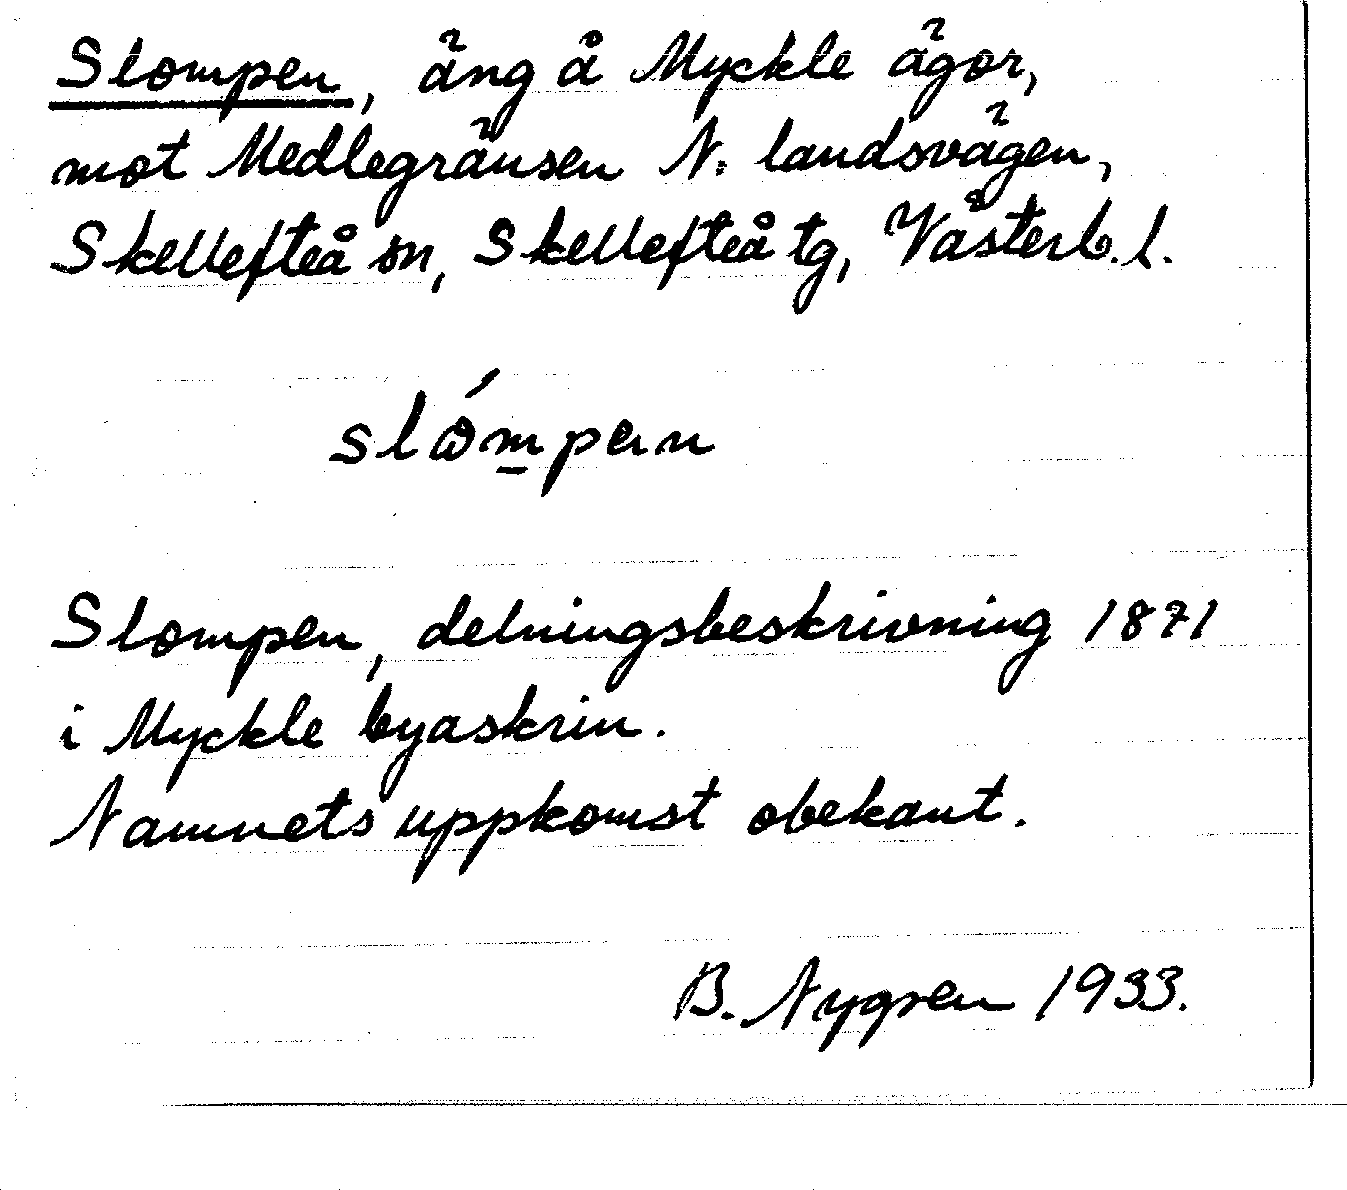 Slompen, äng å Myckle ägor,
mot Medlegränsen N. landsvägen,
Skellefteå sn, Skellefteå tg, Västerb. l.
slómpen
Slompen, delningsbeskrivning 1871
i Myckle byaskrin.
Namnets uppkomst obekant.
B. Nygren 1933.